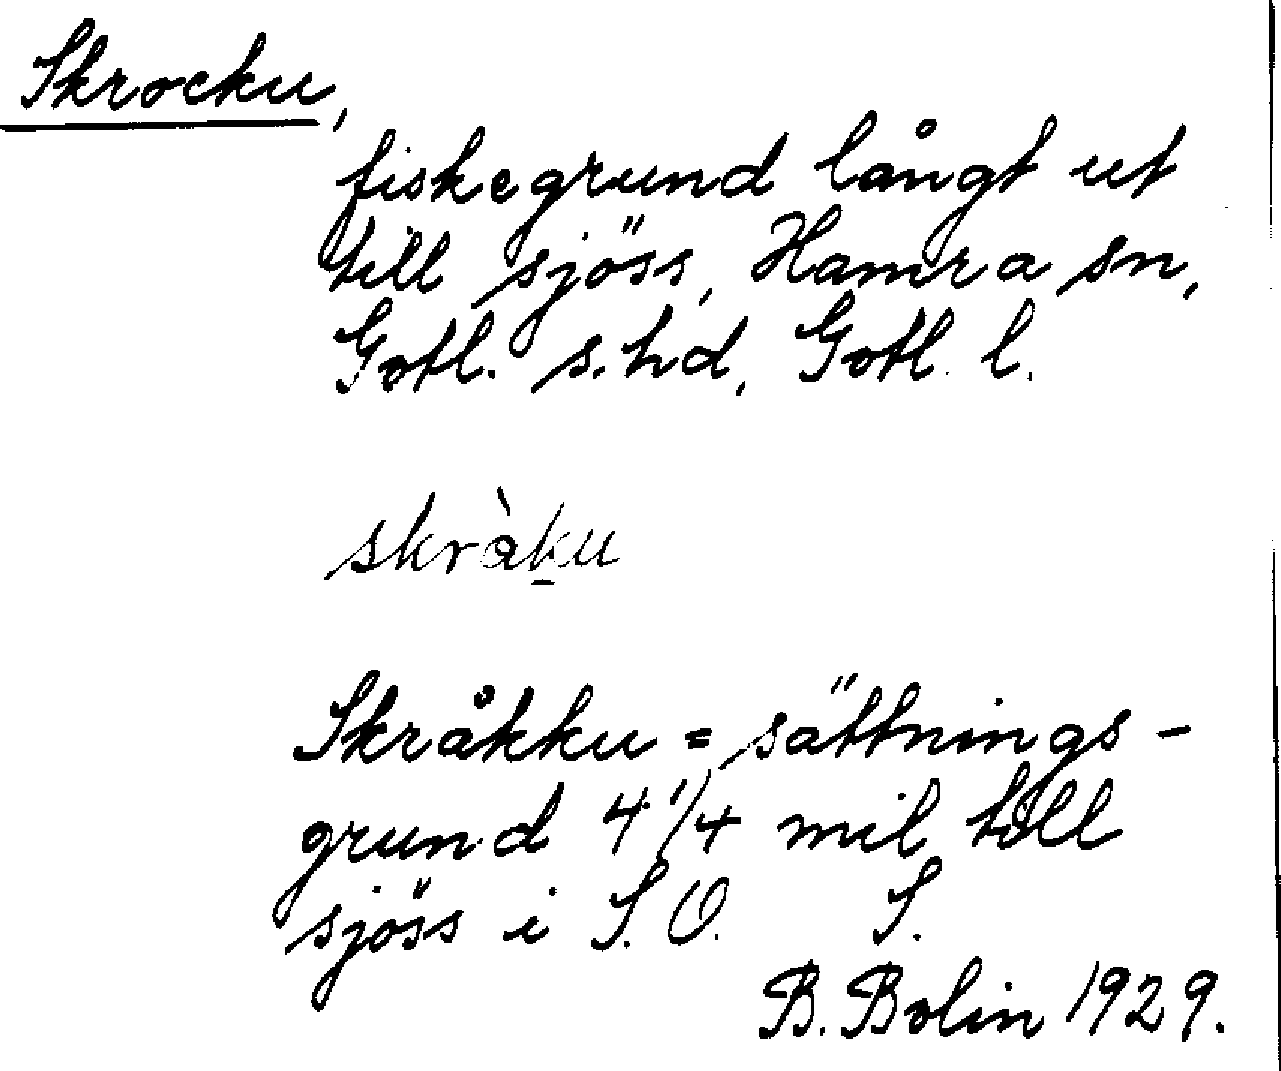 Skrocku,
fiskegrund långt ut
till sjöss, Hamra sn,
Gotl. s. hd, Gotl. l.
skràk̲u
Skråkku = sättnings-
grund 4 1/4 mil till
sjöss i S.O. S.
B. Bolin 1929.